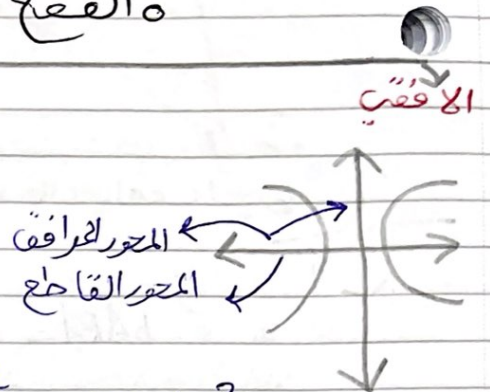 القطع
الافقي
المحور المرافق
المحور القاطع